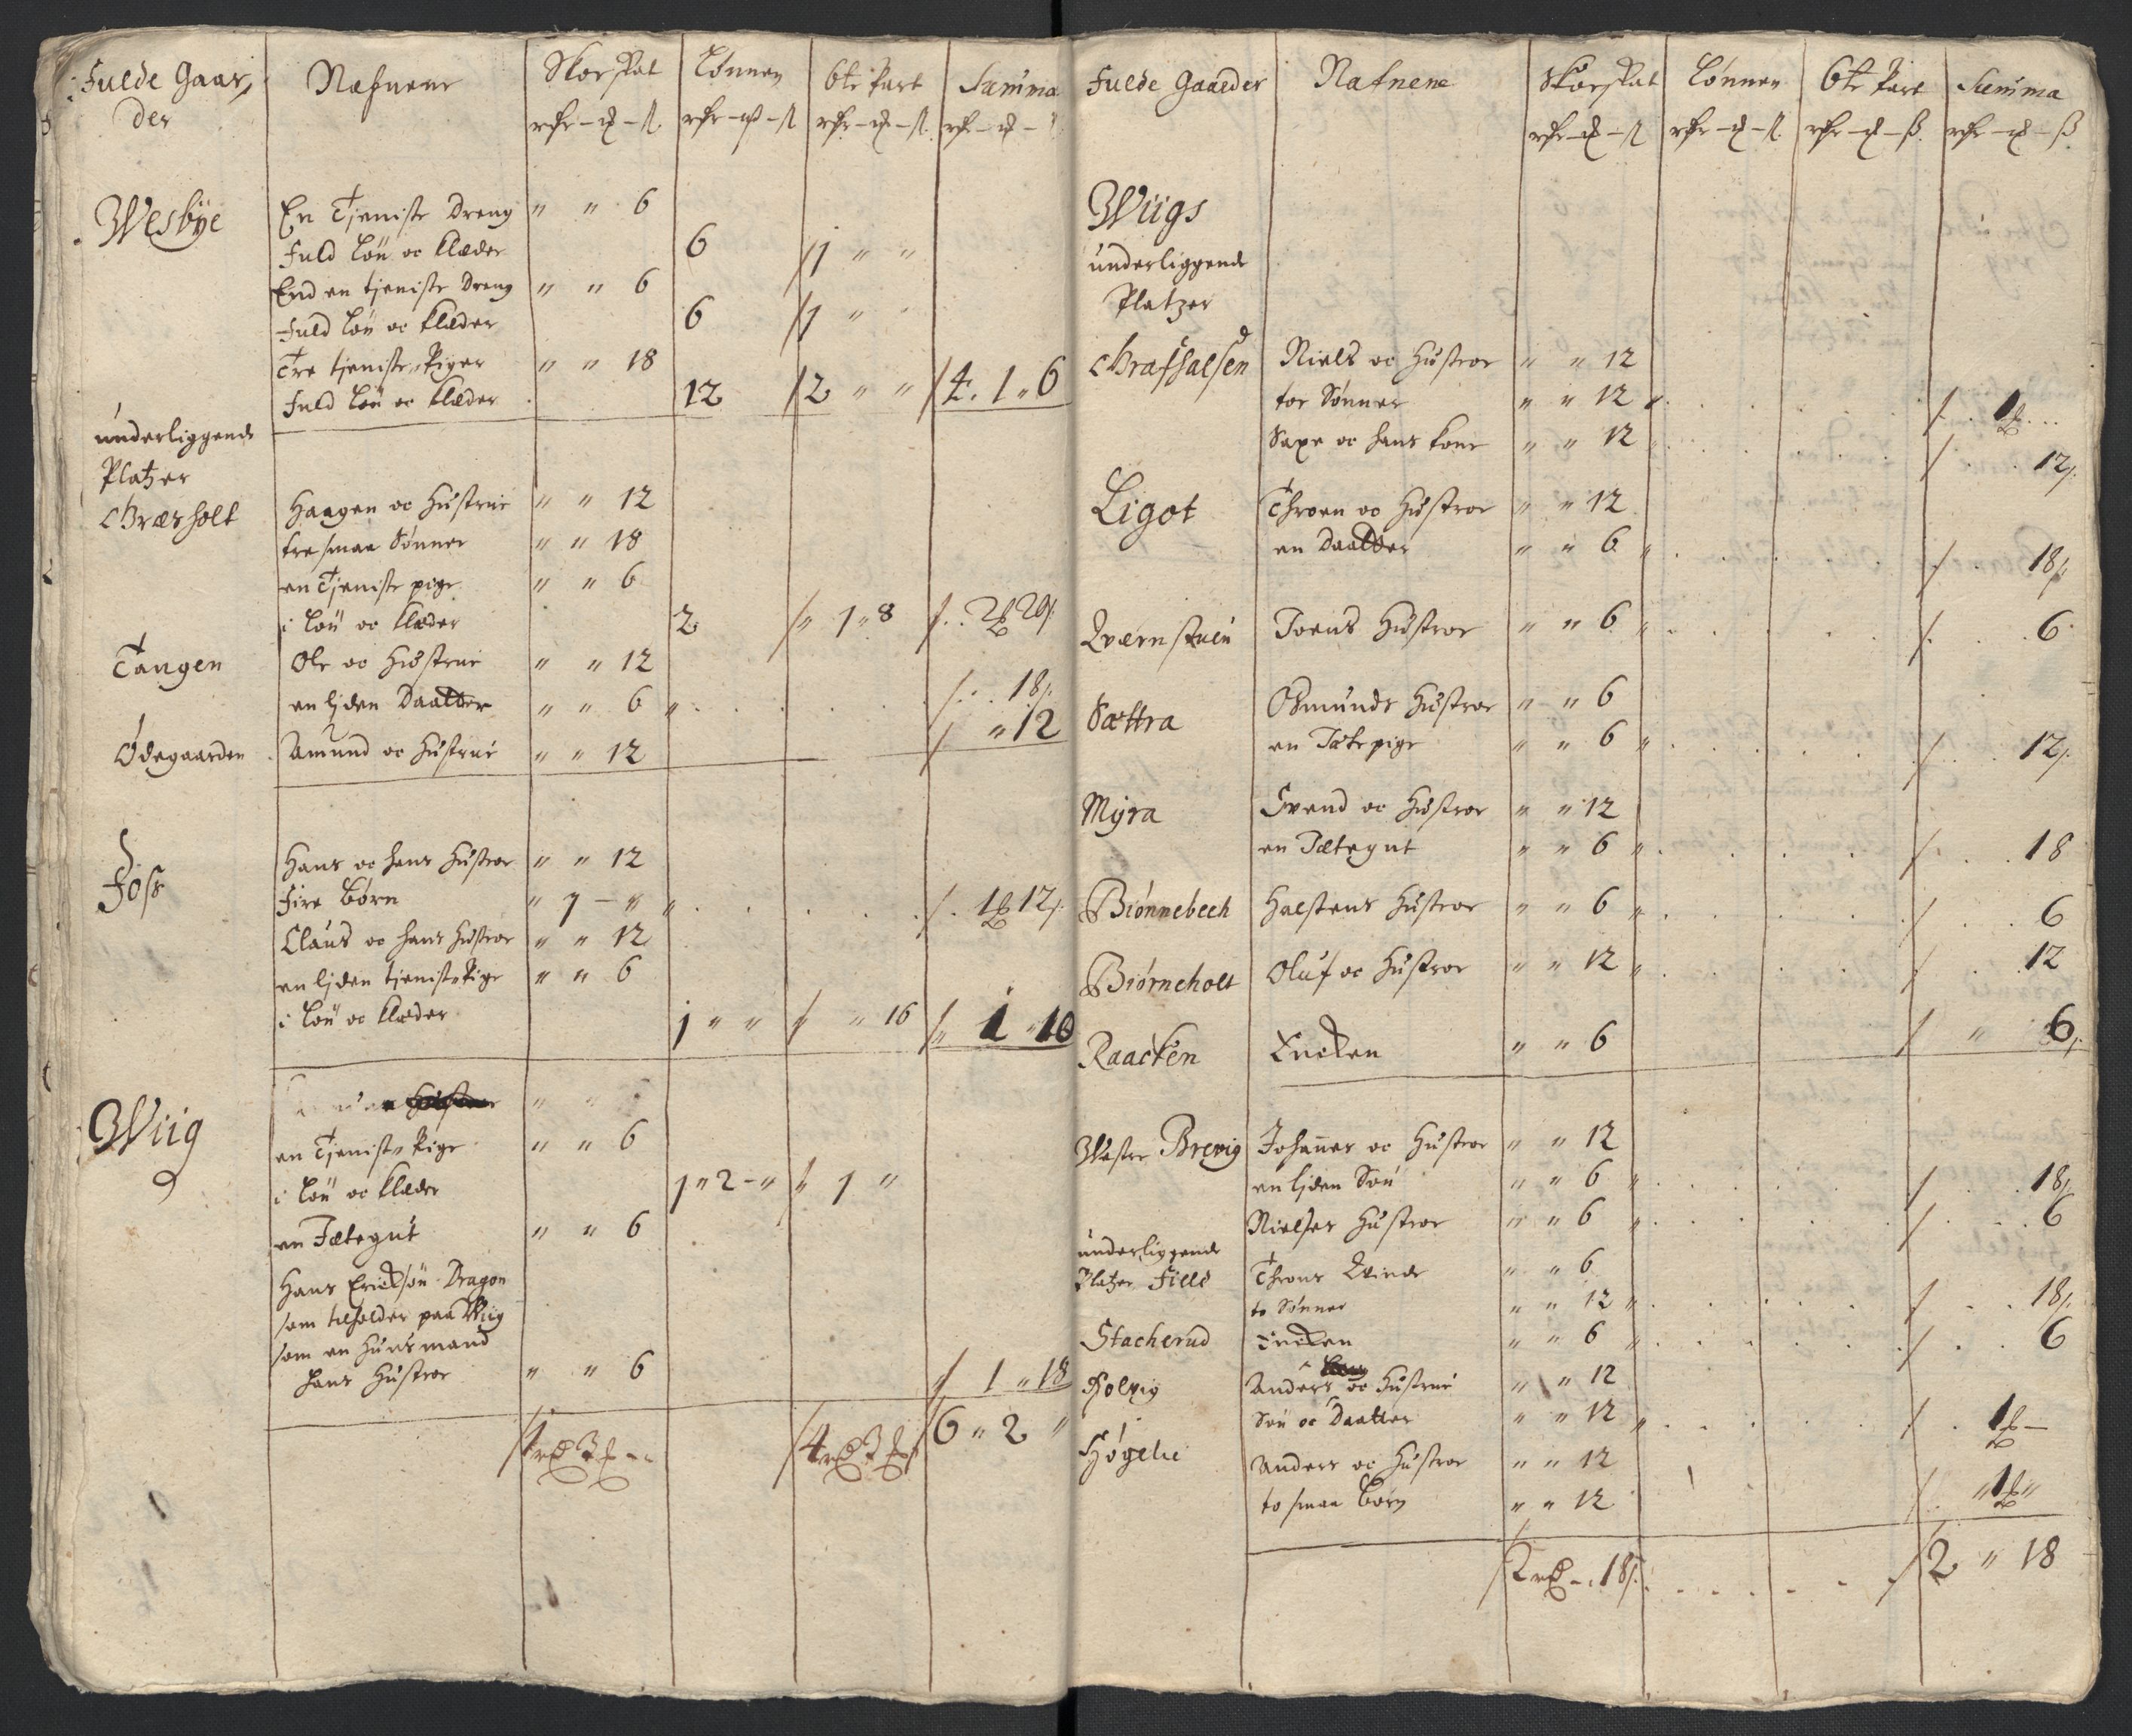 Fulde Gaar,
der
Nafnene
Skoeskat
Lønnen
6te Part
Summa
Wesbÿe
En Tjeniste Dreng " " 6
Fuld Løn oc klæder 6 1 " "
End en tjeniste Dreng " " 6
Fuld Løn oc klæder 6 1 " "
Tre tjeniste Piger " " 18
Fuld Løn oc klæder 12 2 " " 4. 1 " 6
underliggende
Platzer
Bræsholt Haagen oc Hustrue " " 12
tre smaa Sønner " " 18
en Tjeniste pige " " 6
i Løn oc klæder 2 " 1 " 8 2 20
Tangen Ole oc Hustrue " " 12
en liden Daatter " " 6 " 18
Ødegaarden Amund oc Hustrue " " 12 " 12
Foss Hans oc hans Hustroe " " 12
Fire Børn " 1 - " " 1 12
Claus oc hans Hustroe " " 12
en liden tjeniste Pige " " 6
i Løn oc klæder 1 " " " 16 " 1 " 10
Wiig
en Tjeniste Pige " " 6
i Løn oc klæder 1 " 2 - " 1 "
en Tætegut " " 6
Hans Ericksøn Dragon
som tilholder paa Wiig
som en Huusmand
hans Hustroe " " 6 1 " 18
4 rd 3 - " 4 rd 3 6 " 2 "
Fulde Gaarder
Nafnene
Skoeskat
Lønnen
6te Part
Summa
Wiigs
underliggende
Platzer
Brafhalsen Niels oc Hustroe " " 12
toe Sønner " " 12 " 1
Saxe oc hans kone " " 12 " 12
Ligot Throen oc Hustroe " " 12
en Daatter " " 6 " 18
Qværnstuen Joens Hustroe " " 6 " 6
Sættra Osmunds Hustroe " " 6
en Tætepige " " 6 " 12
Mÿra Svend oc Hustroe " " 12
en Tætegut " " 6 " 18
Biønnebech Halstens Hustroe " " 6 " 6
Biørneholt Oluf oc Hustroe " " 12 " 12
Raacken Encken " " 6 " 6
Westre Brevig Johannes oc Hustroe " " 12
en liden Søn " " 6 " 18
Nielses Hustroe " " 6 " 6
underliggende
Platzer Fille Throns Qvinde " " 6
to Sønner " " 12 " 18
Stacherud Encken " " 6 " 6
Holvig Anders oc Hustrue " " 12
Søn oc Daatter " " 12 " 1 -
Høgelie Anders oc Hustroe " " 12
to smaa Børn " " 12 " 1 "
2 rd - 18 2 " 18